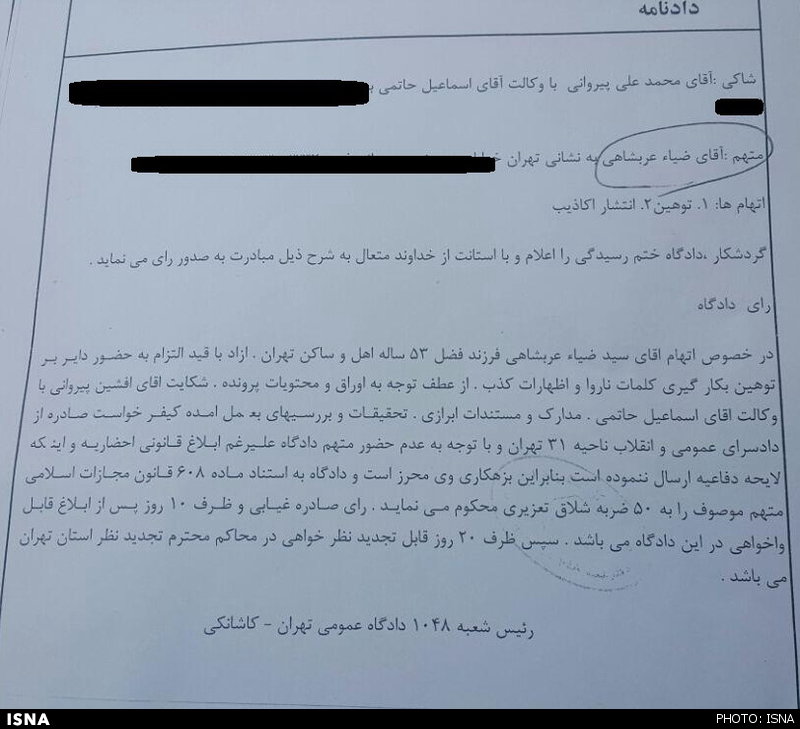 دادنامه
شاکی :آقای محمد علی پیروانی با وکالت آقای اسماعیل حاتمی
متهم :آقای ضیاء عربشاهی به نشانی تهران
اتهام ها: ۱. توهین۲. انتشار اکاذیب
گردشکار ،دادگاه ختم رسیدگی را اعلام و با استانت از خداوند متعال به شرح ذیل مبادرت به صدور رای می نماید .
رای دادگاه
در خصوص اتهام اقای سید ضیاء عربشاهی فرزند فضل ۵۳ ساله اهل و ساکن تهران . ازاد با قید التزام به حضور دایر بر
توهین بکار گیری کلمات ناروا و اظهارات کذب . از عطف توجه به اوراق و محتویات پرونده . شکایت اقای افشین پیروانی با
وکالت اقای اسماعیل حاتمی . مدارک و مستندات ابرازی . تحقیقات و بررسیهای بعمل امده کیفر خواست صادره از
دادسرای عمومی و انقلاب ناحیه ۳۱ تهران و با توجه به عدم حضور متهم دادگاه علیرغم ابلاغ قانونی احضاریه و اینکه
لایحه دفاعیه ارسال ننموده است بنابراین بزهکاری وی محرز است و دادگاه به استناد ماده ۶۰۸ قانون مجازات اسلامی
متهم موصوف را به ۵۰ ضربه شلاق تعزیری محکوم می نماید . رای صادره غیابی و ظرف ۱۰ روز پس از ابلاغ قابل
واخواهی در این دادگاه می باشد . سپس ظرف ۲۰ روز قابل تجدید نظر خواهی در محاکم محترم تجدید نظر استان تهران
می باشد .
رئیس شعبه ۱۰۴۸ دادگاه عمومی تهران - کاشانکی
ISNA
PHOTO: ISNA